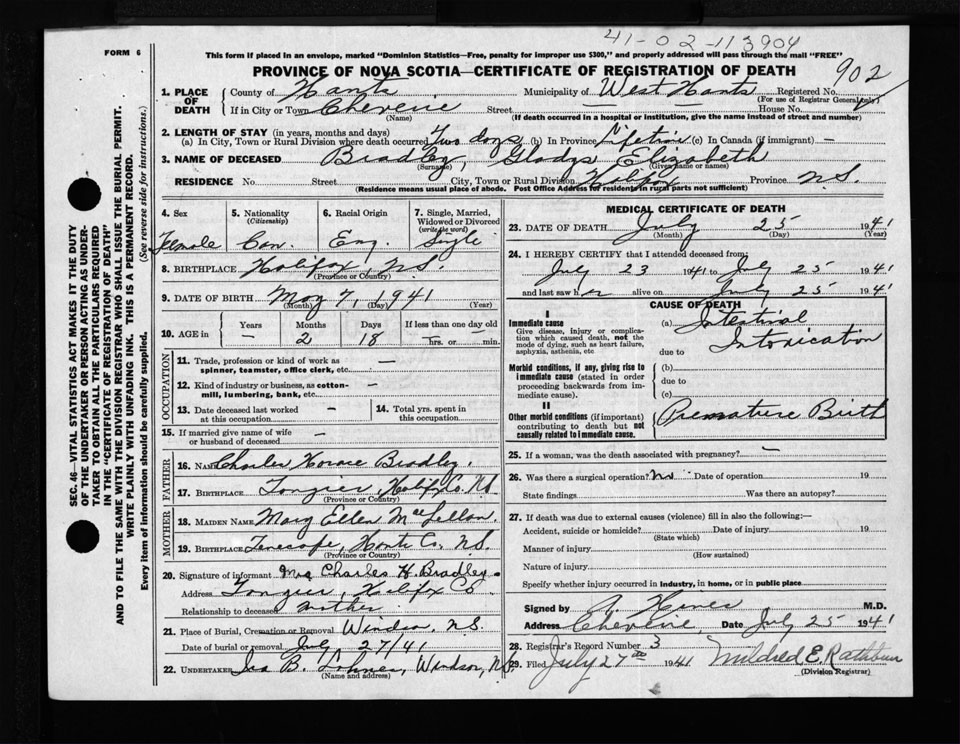 41-02-113904
FORM 6
This form if placed in an envelope, marked "Dominion Statistics—Free, penalty for improper use $300," and properly addressed will pass through the mail "FREE"
PROVINCE OF NOVA SCOTIA—CERTIFICATE OF REGISTRATION OF DEATH
902
1. PLACE OF DEATH County of Hants Municipality of West Hants Registered No.
(For use of Registrar General only)
If in City or Town Cheverie Street — House No. —
(Name) (If death occurred in a hospital or institution, give the name instead of street and number)
2. LENGTH OF STAY (in years, months and days)
(a) In City, Town or Rural Division where death occurred Two days (b) In Province Lifetime (c) In Canada (if immigrant) —
3. NAME OF DECEASED Bradley, Gladys Elizabeth
(Surname) (Given name or names)
RESIDENCE No. Street City, Town or Rural Division Halifax Province N.S.
(Residence means usual place of abode. Post Office Address for residents in rural parts not sufficient)
SEC. 46—VITAL STATISTICS ACT MAKES IT THE DUTY
OF THE UNDERTAKER OR PERSON ACTING AS UNDER-
TAKER TO OBTAIN ALL THE PARTICULARS REQUIRED
IN THE "CERTIFICATE OF REGISTRATION OF DEATH"
AND TO FILE THE SAME WITH THE DIVISION REGISTRAR WHO SHALL ISSUE THE BURIAL PERMIT.
WRITE PLAINLY WITH UNFADING INK. THIS IS A PERMANENT RECORD.
Every item of information should be carefully supplied. (See reverse side for instructions.)
4. Sex Female
5. Nationality (Citizenship) Can.
6. Racial Origin Eng.
7. Single, Married, Widowed or Divorced (write the word) Single
8. BIRTHPLACE Halifax, N.S.
(Province or Country)
9. DATE OF BIRTH May 7, 1941
(Month) (Day) (Year)
10. AGE in Years — Months 2 Days 18 If less than one day old — hrs. or min.
OCCUPATION
11. Trade, profession or kind of work as spinner, teamster, office clerk, etc. —
12. Kind of industry or business, as cotton-mill, lumbering, bank, etc. —
13. Date deceased last worked at this occupation —
14. Total yrs. spent in this occupation
15. If married give name of wife or husband of deceased —
FATHER
16. NAME Charles Horace Bradley.
17. BIRTHPLACE Tangier, Halifax Co. N.S.
(Province or Country)
MOTHER
18. MAIDEN NAME Mary Ellen MacLellan.
19. BIRTHPLACE Tenecape, Hants Co., N.S.
(Province or Country)
20. Signature of informant Mrs Charles H. Bradley.
Address Tangier, Halifax Co.
Relationship to deceased Mother
21. Place of Burial, Cremation or Removal Windsor, N.S.
Date of burial or removal July 27/41
22. UNDERTAKER Ira B. Lohnes, Windsor, N.S.
(Name and address)
MEDICAL CERTIFICATE OF DEATH
23. DATE OF DEATH July 25 1941
(Month) (Day) (Year)
24. I HEREBY CERTIFY that I attended deceased from
July 23 1941 to July 25 1941
and last saw her alive on July 25 1941
CAUSE OF DEATH
I
Immediate cause
Give disease, injury or complication which caused death, not the mode of dying, such as heart failure, asphyxia, asthenia, etc
(a) Intestinal Intoxication
due to
Morbid conditions, if any, giving rise to immediate cause (stated in order proceeding backwards from immediate cause).
(b)
due to
(c)
II
Other morbid conditions (if important) contributing to death but not causally related to immediate cause.
Premature Birth
25. If a woman, was the death associated with pregnancy? —
26. Was there a surgical operation? No Date of operation 19
State findings Was there an autopsy?
27. If death was due to external causes (violence) fill in also the following:—
Accident, suicide or homicide? Date of injury 19
(State which)
Manner of injury
(How sustained)
Nature of injury
Specify whether injury occurred in industry, in home, or in public place
Signed by A. Hines M.D.
Address Cheverie Date July 25 1941
28. Registrar's Record Number 3
29. Filed July 27th 1941 Mildred E. Rathbun
(Division Registrar)